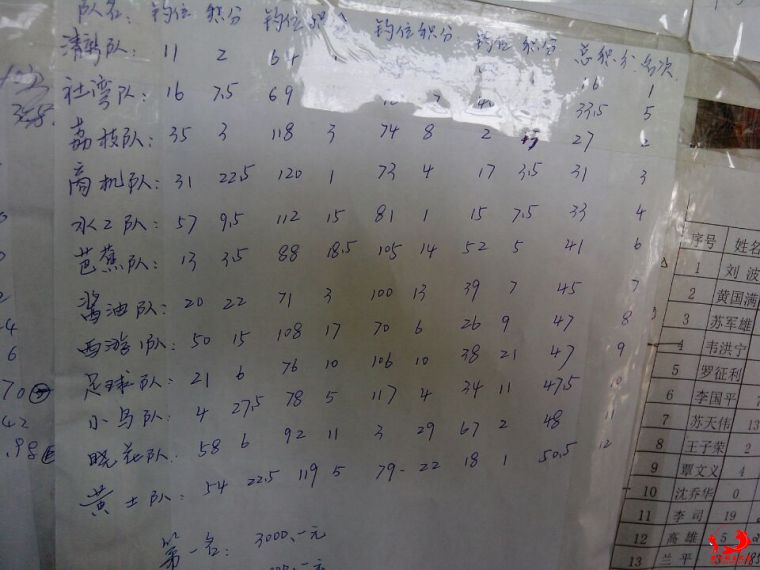 队名: 钓位 积分 钓位 积分 钓位 积分 钓位 积分 总积分 名次
清新队: 11 2 64 16 1
社湾队: 16 7.5 69 7 33.5 5
荔枝队: 35 3 118 3 74 8 2 27 2
商机队: 31 22.5 120 1 73 4 17 3.5 31 3
水工队: 57 9.5 112 15 81 1 15 7.5 33 4
芭蕉队: 13 3.5 88 18.5 105 14 52 5 41 6
酱油队: 20 22 71 3 100 13 39 7 45 7
西游队: 50 15 108 17 70 6 26 9 47 8
足球队: 21 6 76 10 106 10 38 21 47 9
小鸟队: 4 27.5 78 5 117 4 34 11 47.5 10
晓花队: 58 6 92 11 3 29 67 2 48 11
黄土队: 54 22.5 119 5 79 22 18 1 50.5 12
第一名: 3000.-元
序号 姓名
1 刘波
2 黄国满
3 苏军雄
4 韦洪宁
5 罗征利
6 李国平
7 苏天伟 13
8 王子荣 2
9 覃文义 4
10 沈乔华 0
11 李司 19
12 高雄 5
13 兰平